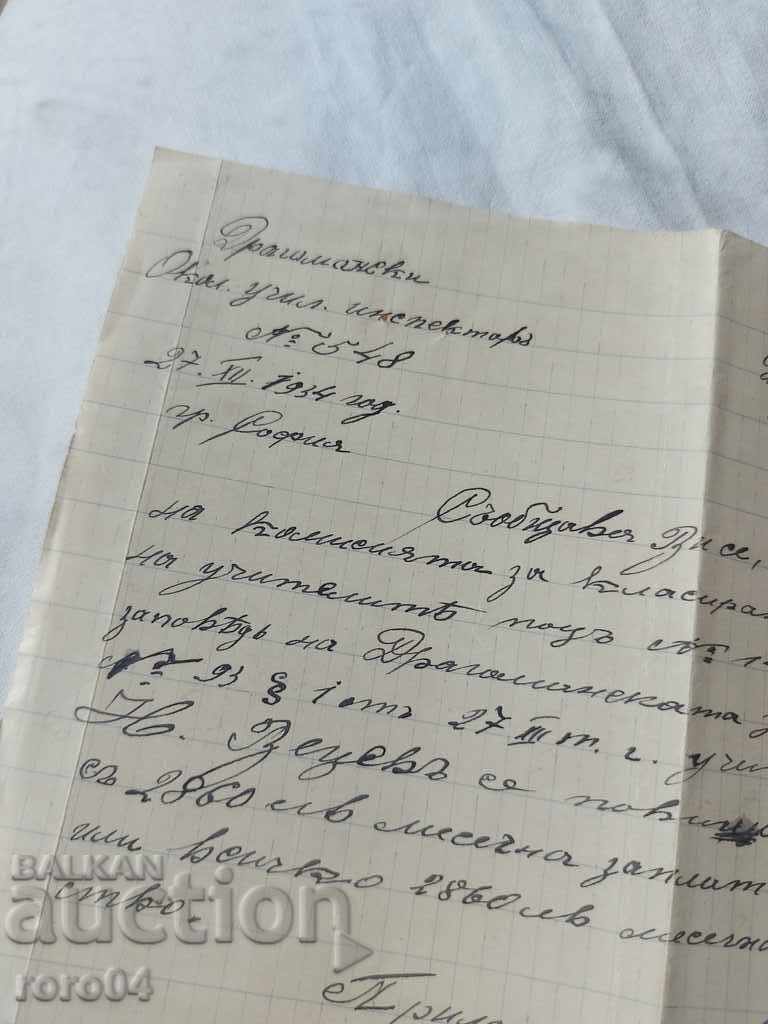 Драгомански
Окол. учил. инспекторъ
№ 548
27. XII. 1934 год.
гр. София
Съобщава Ви се,
на комисията за класиран
на учителитѣ подъ №
заповѣдь на Драгоманската
№ 93 § 1 отъ 27 III т. г. учи
Н. Вецевъ се
съ 2860 лв месечна заплат
или всичко 2860 лв месечно
ство.
Прило
BALKAN
auction
roro04